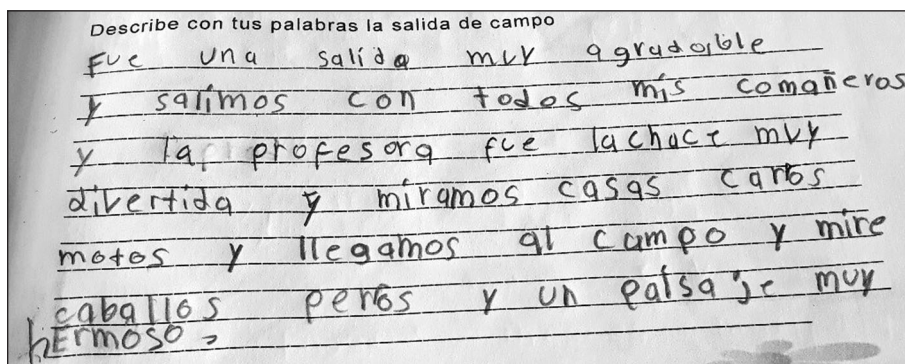 Describe con tus palabras la salida de campo
Fue una salida muy agradable
y salimos con todos mis comañeros
y la profesora fue lachace muy
divertida y miramos casas carros
motos y llegamos al campo y mire
caballos perros y un paisaje muy
hermoso.